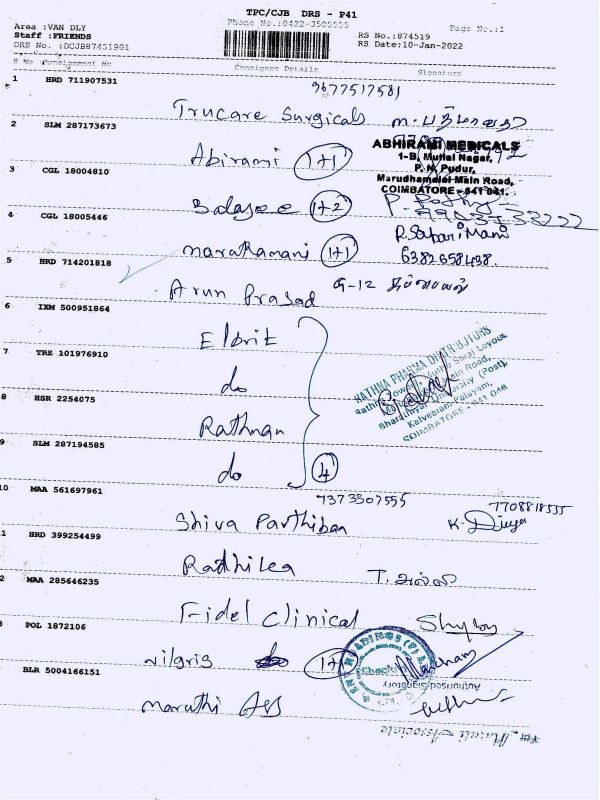 TPC/CJB DRS - P41
Area :VAN DLY
Phone No.:0422-3505555
Page No.:1
Staff :FRIENDS
RS No.:874519
DRS No. :DCJB87451901
RS Date:10-Jan-2022
S No Consignment No Consignee Details Signature
1 HRD 711907531 9677517581
Trucare Surgicals
2 SLM 287173673
Abirami 1+1
ABHIRAMI MEDICALS
1-B, Mullai Nagar,
P. N. Pudur,
Marudhamalai Main Road,
COIMBATORE - 641 041.
3 CGL 18004810
Balajee 1+2
4 CGL 18005446
R. Sabari Mani
Marathamani 1+1 6382658438.
5 HRD 714201818
Arun Prasad
6 IXM 500951864
Elbrit
7 TRZ 101976910
do
RATHNA PHARMA DISTRIBUTORS
Kalveeram Palayam,
COIMBATORE - 641 046
8 HSR 2254075
Rathnan
9 SLM 287194585
do 4
10 MAA 561697961 7373507555 7708818555
Shiva Parthiban K. Divya
1 HRD 399254499
Radhika
2 MAA 285646235
Fidel Clinical
3 POL 1872106
Nilgris 1+1
Authorised Signatory
BLR 5004166151
Maruthi Ass